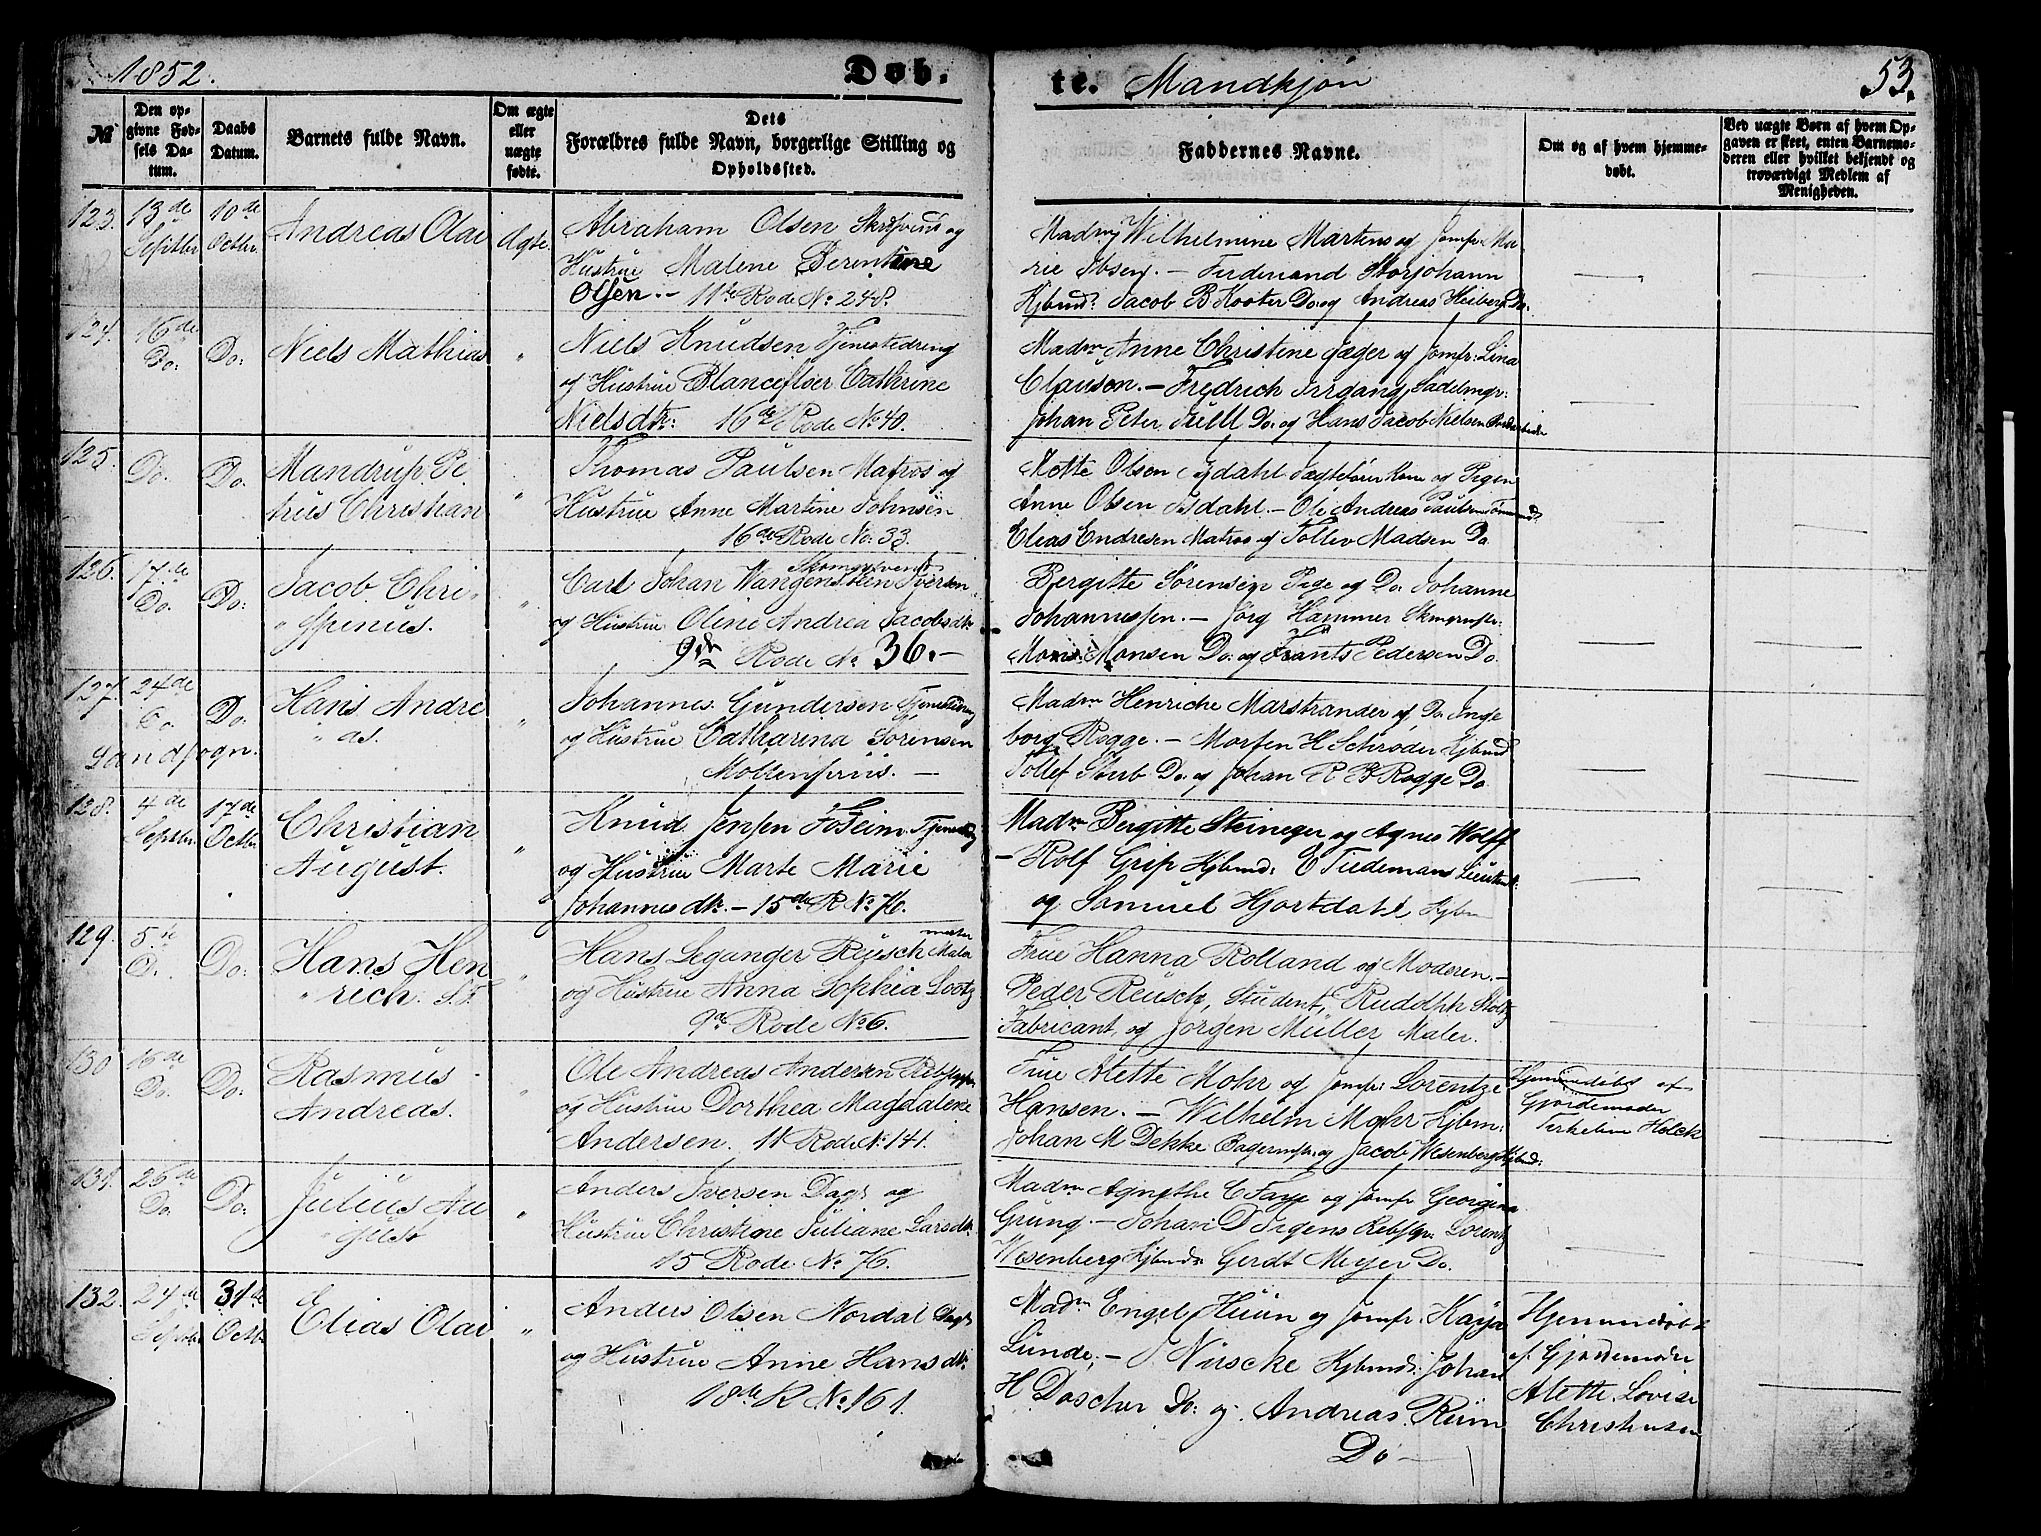 1852. Døb- te. Mandkjøn 53.
№ Den opgivne Fødsels Datum. Daabs Datum. Barnets fulde Navn. Om ægte eller uægte fødte. Dets Forældres fulde Navn, borgerlige Stilling og Opholdssted. Faddernes Navne. Om og af hvem hjemmedøbt. Ved uægte Børn af hvem Opgaven er skeet, enten Barnemoderen eller hvilket bekjendt og troværdigt Medlem af Menigheden.
123. 13de Septbr. 10de Octbr. Andreas Olai Ægte. Abraham Olsen og
Hustrue Malene Berentine
Olsen. - 11te Rode No. 248.
Madm Wilhelmine Martens og Jomfr: Ma-
rie Ibsen. - Ferdinand Storjohann
Kjbmd: Jacob B Kooter Do. og Andreas Heiberg Do.
124. 16de Do. Do. Niels Mathias " Niels Knudsen Tjenestedreng
og Hustrue Blancefloer Cathrine
Nielsdtr: 16de Rode No. 40.
Madm Anne Christine Jæger og Jomfr: Lina
Clausen. - Fredrich Irrgang, Sadelmgr:
Johan Peter Do. og Hans Jacob Nielsen
125. Do. Do. Mandrup Pe-
trus Christian "
Thomas Paulsen Matros og
Hustrue Anne Martine Johnsen
16de Rode No. 33.
Mette Olsen Kone og Pigen
Anne Olsen Isdahl. - Ole Andreas Paulsen
Elias Endresen Matros og Tollev Madsen Do.
126. 17de Do. Do. Jacob Chri-
" spenus. "
Skomgrsvend
Carl Johan Wangensteen Iversen
og Hustrue Oline Andrea Jacobsdtr
9de Rode No 36. -
Bergitte Sørensen Pige og Do. Johanne
Johannessen. - Jørg Hammer Skmgrmstr.
Mons Monsen Do. og Frants Pedersen Do.
127. 24de Do. Do. Hans Andre
" as. "
Landsogn.
Johannes Gundersen
og Hustrue Catharina Sørensen
Møllenpriis. -
Madm Henriche Marstrander og Do. Inge
borg Rogge. - Morten H Schrøder Kjbmd
Tollef Stub Do. og Johan R B Rogge Do.
128. 4de Septbr. 17de Octbr. Christian
August. "
Knud Jensen Foseim
og Hustrue Marte Marie
Johannesdtr. - 15de R No. 76.
Madm Bergitte Steineger og Agnes Wolff
- Rolf Grip Kjbmd: C Tiedemans Lieutnt:
og Samuel Hjortdahl, Kjbm
129. 5te D. Do: Hans Hen
" rich. S.F. "
Hans Leganger Reusch Maler
mester
og Hustrue Anna Sophia Lootz
9de Rode No 6.
Frue Hanna Rolland og Moderen. -
Peder Reusch, Student, Rudolph Stoltz
Fabricant, og Jørgen Müller Maler.
130 16de Do. Do. Rasmus
Andreas. "
Ole Andreas Andersen Rebslager
og Hustrue Dorthea Magdalene
Andersen. 11 Rode No. 141.
Frue Mette Mohr og Jomfr: Lorentze
Hansen. - Wilhelm Mohr Kjbm:
Johan M Dekke Bagermstr. og Jacob Wesenberg Kjbmd:
Hjemmedøbt af
Gjordemoder
Holck
131. 26de Do. Do: Julius Au
" gust "
Anders Iversen Dagk og
Hustrue Christine Juliane Larsdtr
15 Rode No. 76.
Madm Agnethe C Faye og Jomfr Georgina
Grung. - Johan D Irgens Rebslgr. Lorentz
Wesenberg Kjbmd: Gerdt Meyer Do.
132. 24de Septbr 31te Octbr Elias Olai "
Anders Olsen Nordal Dagk
og Hustrue Anne Hansdtr.
18de R No. 161.
Madm Engel Huun og Jomfr. Kaya
Lunde. - J Nuscke Kjbmd: Johan
H Doscher Do. og Andreas Ruun
Do -
Hjemmedøbt
af Gjordemoder
Alette Lovise
Christensen